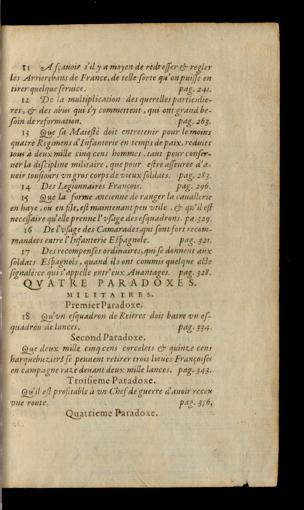 11 A sçauoir s'il y a moyen de redresser & regler
les Arrierebans de France, de telle sorte qu'on puisse en
tirer quelque seruice. pag. 241.
12 De la multiplication des querelles particulie-
res, & des abus qui s'y commettent, qui ont grand be-
soin de reformation. pag. 263.
13 Que sa Maiesté doit entretenir pour le moins
quatre Regimens d'Infanterie en temps de paix, reduits
tous à deux mille cinq cens hommes, tant pour conser-
uer la discipline militaire, que pour estre asseurée d'a-
uoir tousiours vn gros corps de vieux soldats. pag. 283.
14 Des Legionnaires François. pag. 296.
15 Que la forme ancienne de ranger la cauallerie
en haye, ou en file, est maintenant peu vtile, & qu'il est
necessaire qu'elle prenne l'vsage des esquadrons. pa. 329.
16 De l'vsage des Camarades qui sont fort recom-
mandees entre l'Infanterie Espagnole. pag. 321.
17 Des recompenses ordinaires, qui se donnent aux
soldats Espagnols, quand ils ont commis quelque acte
signalé: ce qui s'appelle entr'eux Auantages. pag. 328.
QVATRE PARADOXES,
MILITAIRES.
Premier Paradoxe.
18 Qu'vn esquadron de Reitres doit batre vn es-
quadron de lances. pag. 334.
Second Paradoxe.
Que deux mille cinq cens corcelets & quinze cens
harquebuziers se peuuent retirer trois lieuës Françoises
en campagne raze deuant deux mille lances. pag. 343.
Troisieme Paradoxe.
Qu'il est profitable à vn Chef de guerre d'auoir receu
vne route. pag. 356.
Quatrieme Paradoxe.